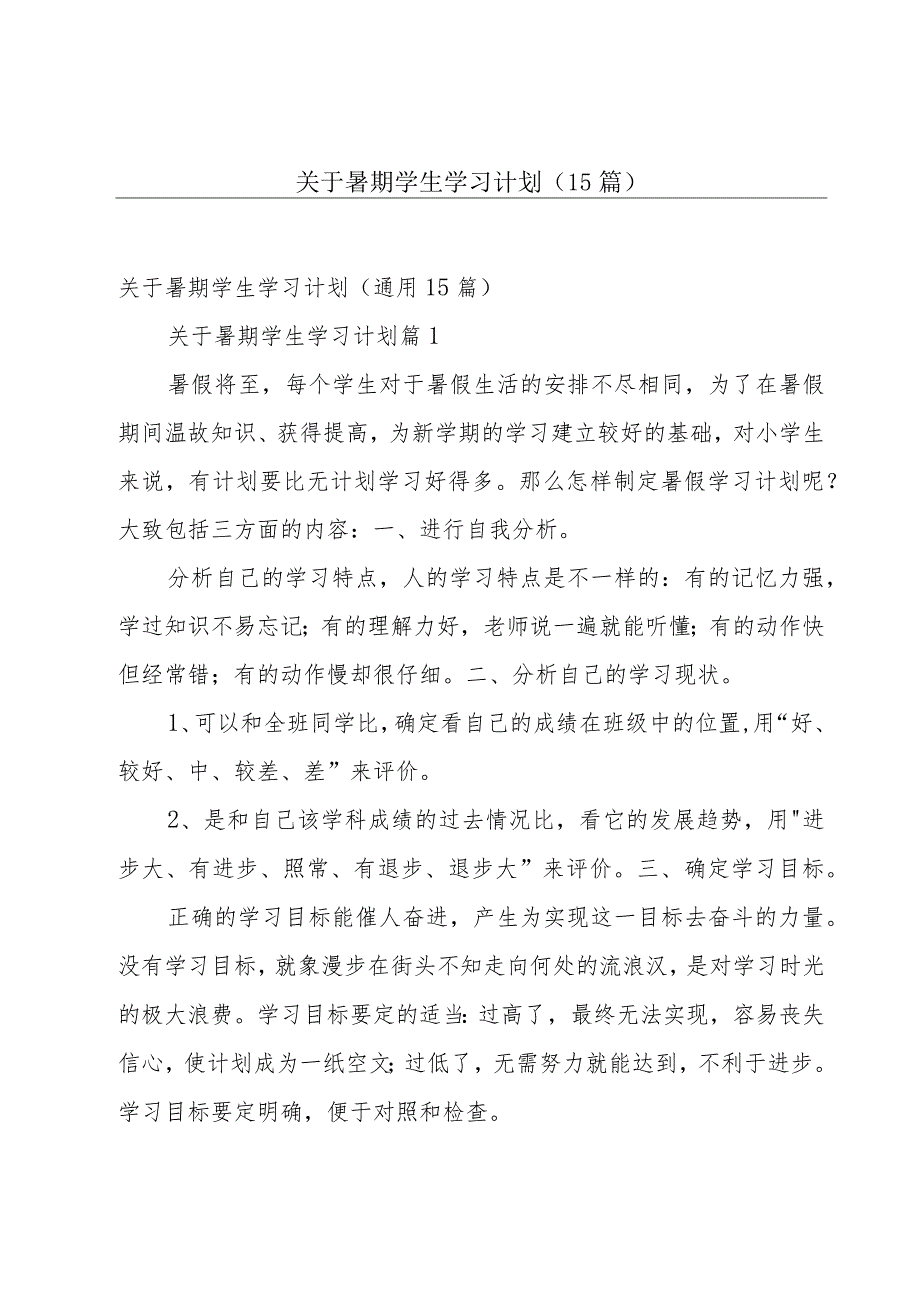 关于暑期学生学习计划（15 篇）
关于暑期学生学习计划（通用 15 篇）
关于暑期学生学习计划篇 1
暑假将至，每个学生对于暑假生活的安排不尽相同，为了在暑假
期间温故知识、获得提高，为新学期的学习建立较好的基础，对小学生
来说，有计划要比无计划学习好得多。那么怎样制定暑假学习计划呢？
大致包括三方面的内容：一、进行自我分析。
分析自己的学习特点，人的学习特点是不一样的：有的记忆力强，
学过知识不易忘记；有的理解力好，老师说一遍就能听懂；有的动作快
但经常错；有的动作慢却很仔细。二、分析自己的学习现状。
1、可以和全班同学比，确定看自己的成绩在班级中的位置,用“好、
较好、中、较差、差”来评价。
2、是和自己该学科成绩的过去情况比，看它的发展趋势，用"进
步大、有进步、照常、有退步、退步大”来评价。三、确定学习目标。
正确的学习目标能催人奋进，产生为实现这一目标去奋斗的力量。
没有学习目标，就象漫步在街头不知走向何处的流浪汉，是对学习时光
的极大浪费。学习目标要定的适当：过高了，最终无法实现，容易丧失
信心，使计划成为一纸空文；过低了，无需努力就能达到，不利于进步。
学习目标要定明确，便于对照和检查。